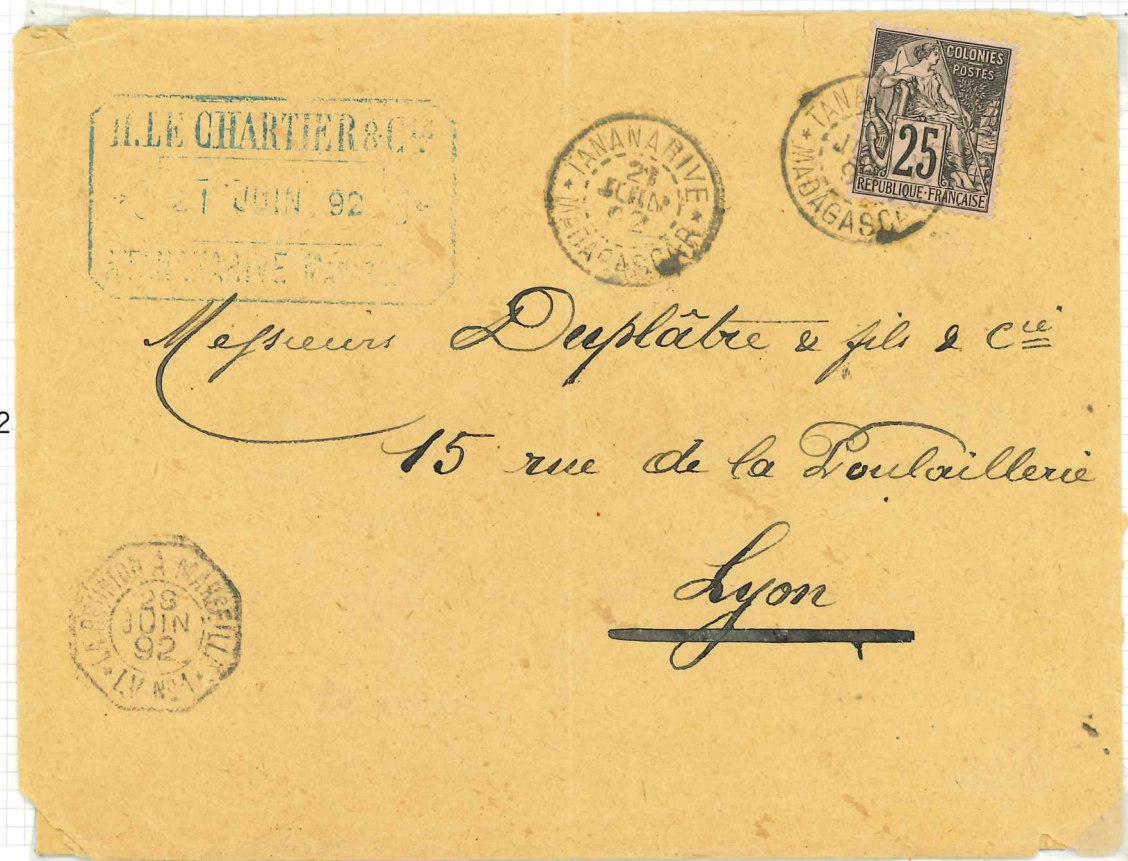 H. LE CHARTIER & Cie
21 JUIN 92
TANANARIVE
21
JUIN
92
MADAGASCAR
COLONIES
POSTES
25
REPUBLIQUE-FRANÇAISE
MADAGASC
Messieurs Duplâtre & fils & Cie
15 rue de la Poulaillerie
Lyon
LA REUNION À MARSEILLE
28
JUIN
92
L.V. No 1
2